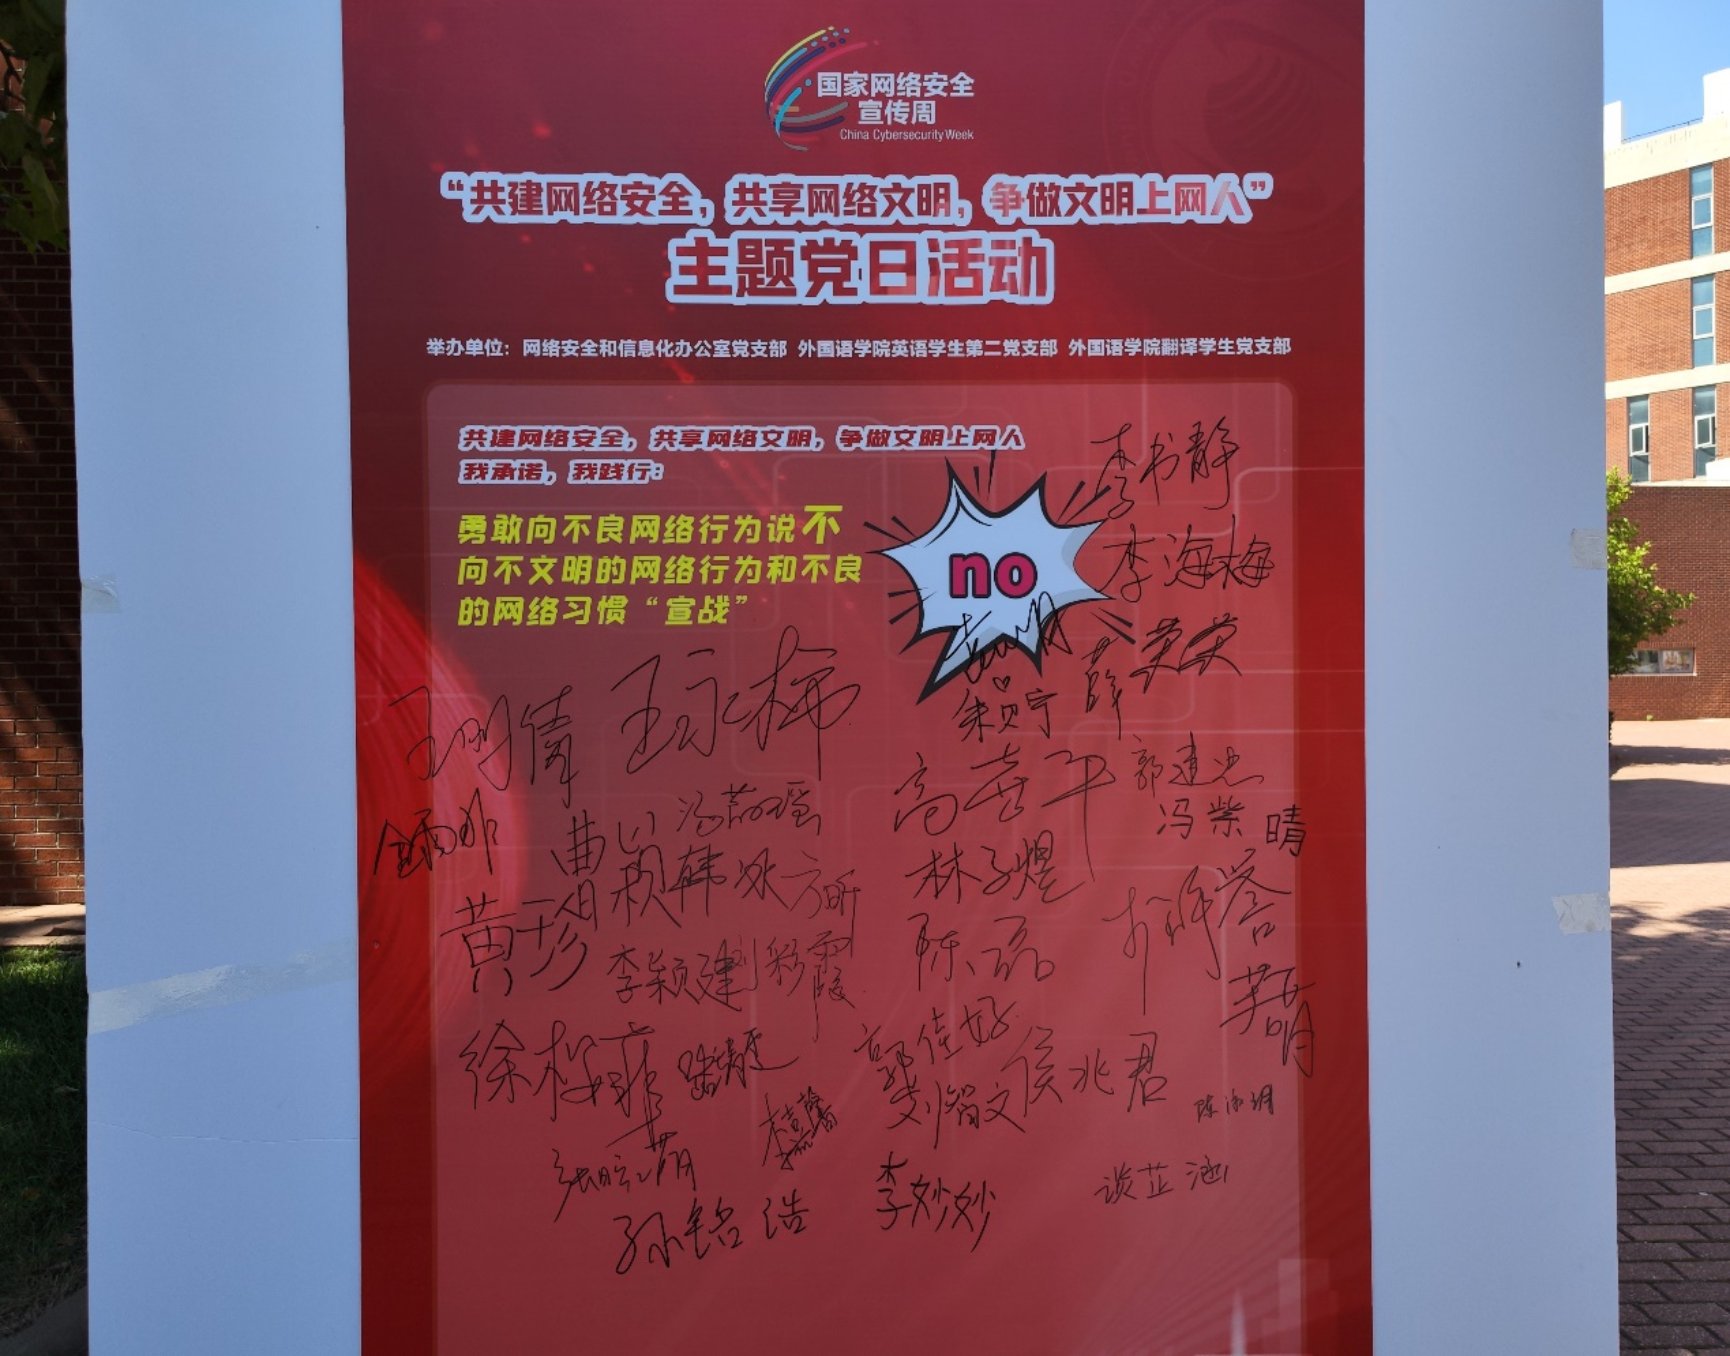 国家网络安全
宣传周
China Cybersecurity Week
“共建网络安全，共享网络文明，争做文明上网人”
主题党日活动
举办单位：网络安全和信息化办公室党支部 外国语学院英语学生第二党支部 外国语学院翻译学生党支部
共建网络安全，共享网络文明，争做文明上网人
我承诺，我践行：
勇敢向不良网络行为说不
向不文明的网络行为和不良
的网络习惯“宣战”
no
李书静
李海梅
薛英英
高喜平
郭建忠
冯紫晴
韩冰
方昕
林子煜
黄珍
陈磊
李颖建
刘彩霞
徐梅菲
郭佳妤
侯兆君
刘智文
孙铭浩
李妙妙
谈芷涵